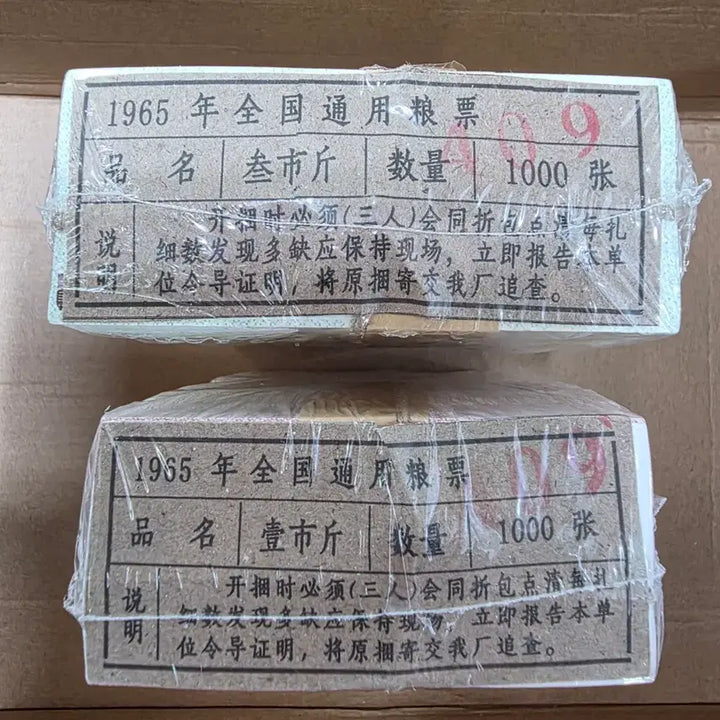 1965 年全国通用粮票
409
品 名 叁市斤 数量 1000 张
说明
开捆时必须(三人)会同折包点清每扎
细数发现多缺应保持现场，立即报告本单
位令导证明，将原捆寄交我厂追查。
1965 年全国通用粮票
09
品 名 壹市斤 数量 1000 张
说明
开捆时必须(三人)会同折包点清每扎
细数发现多缺应保持现场，立即报告本单
位令导证明，将原捆寄交我厂追查。